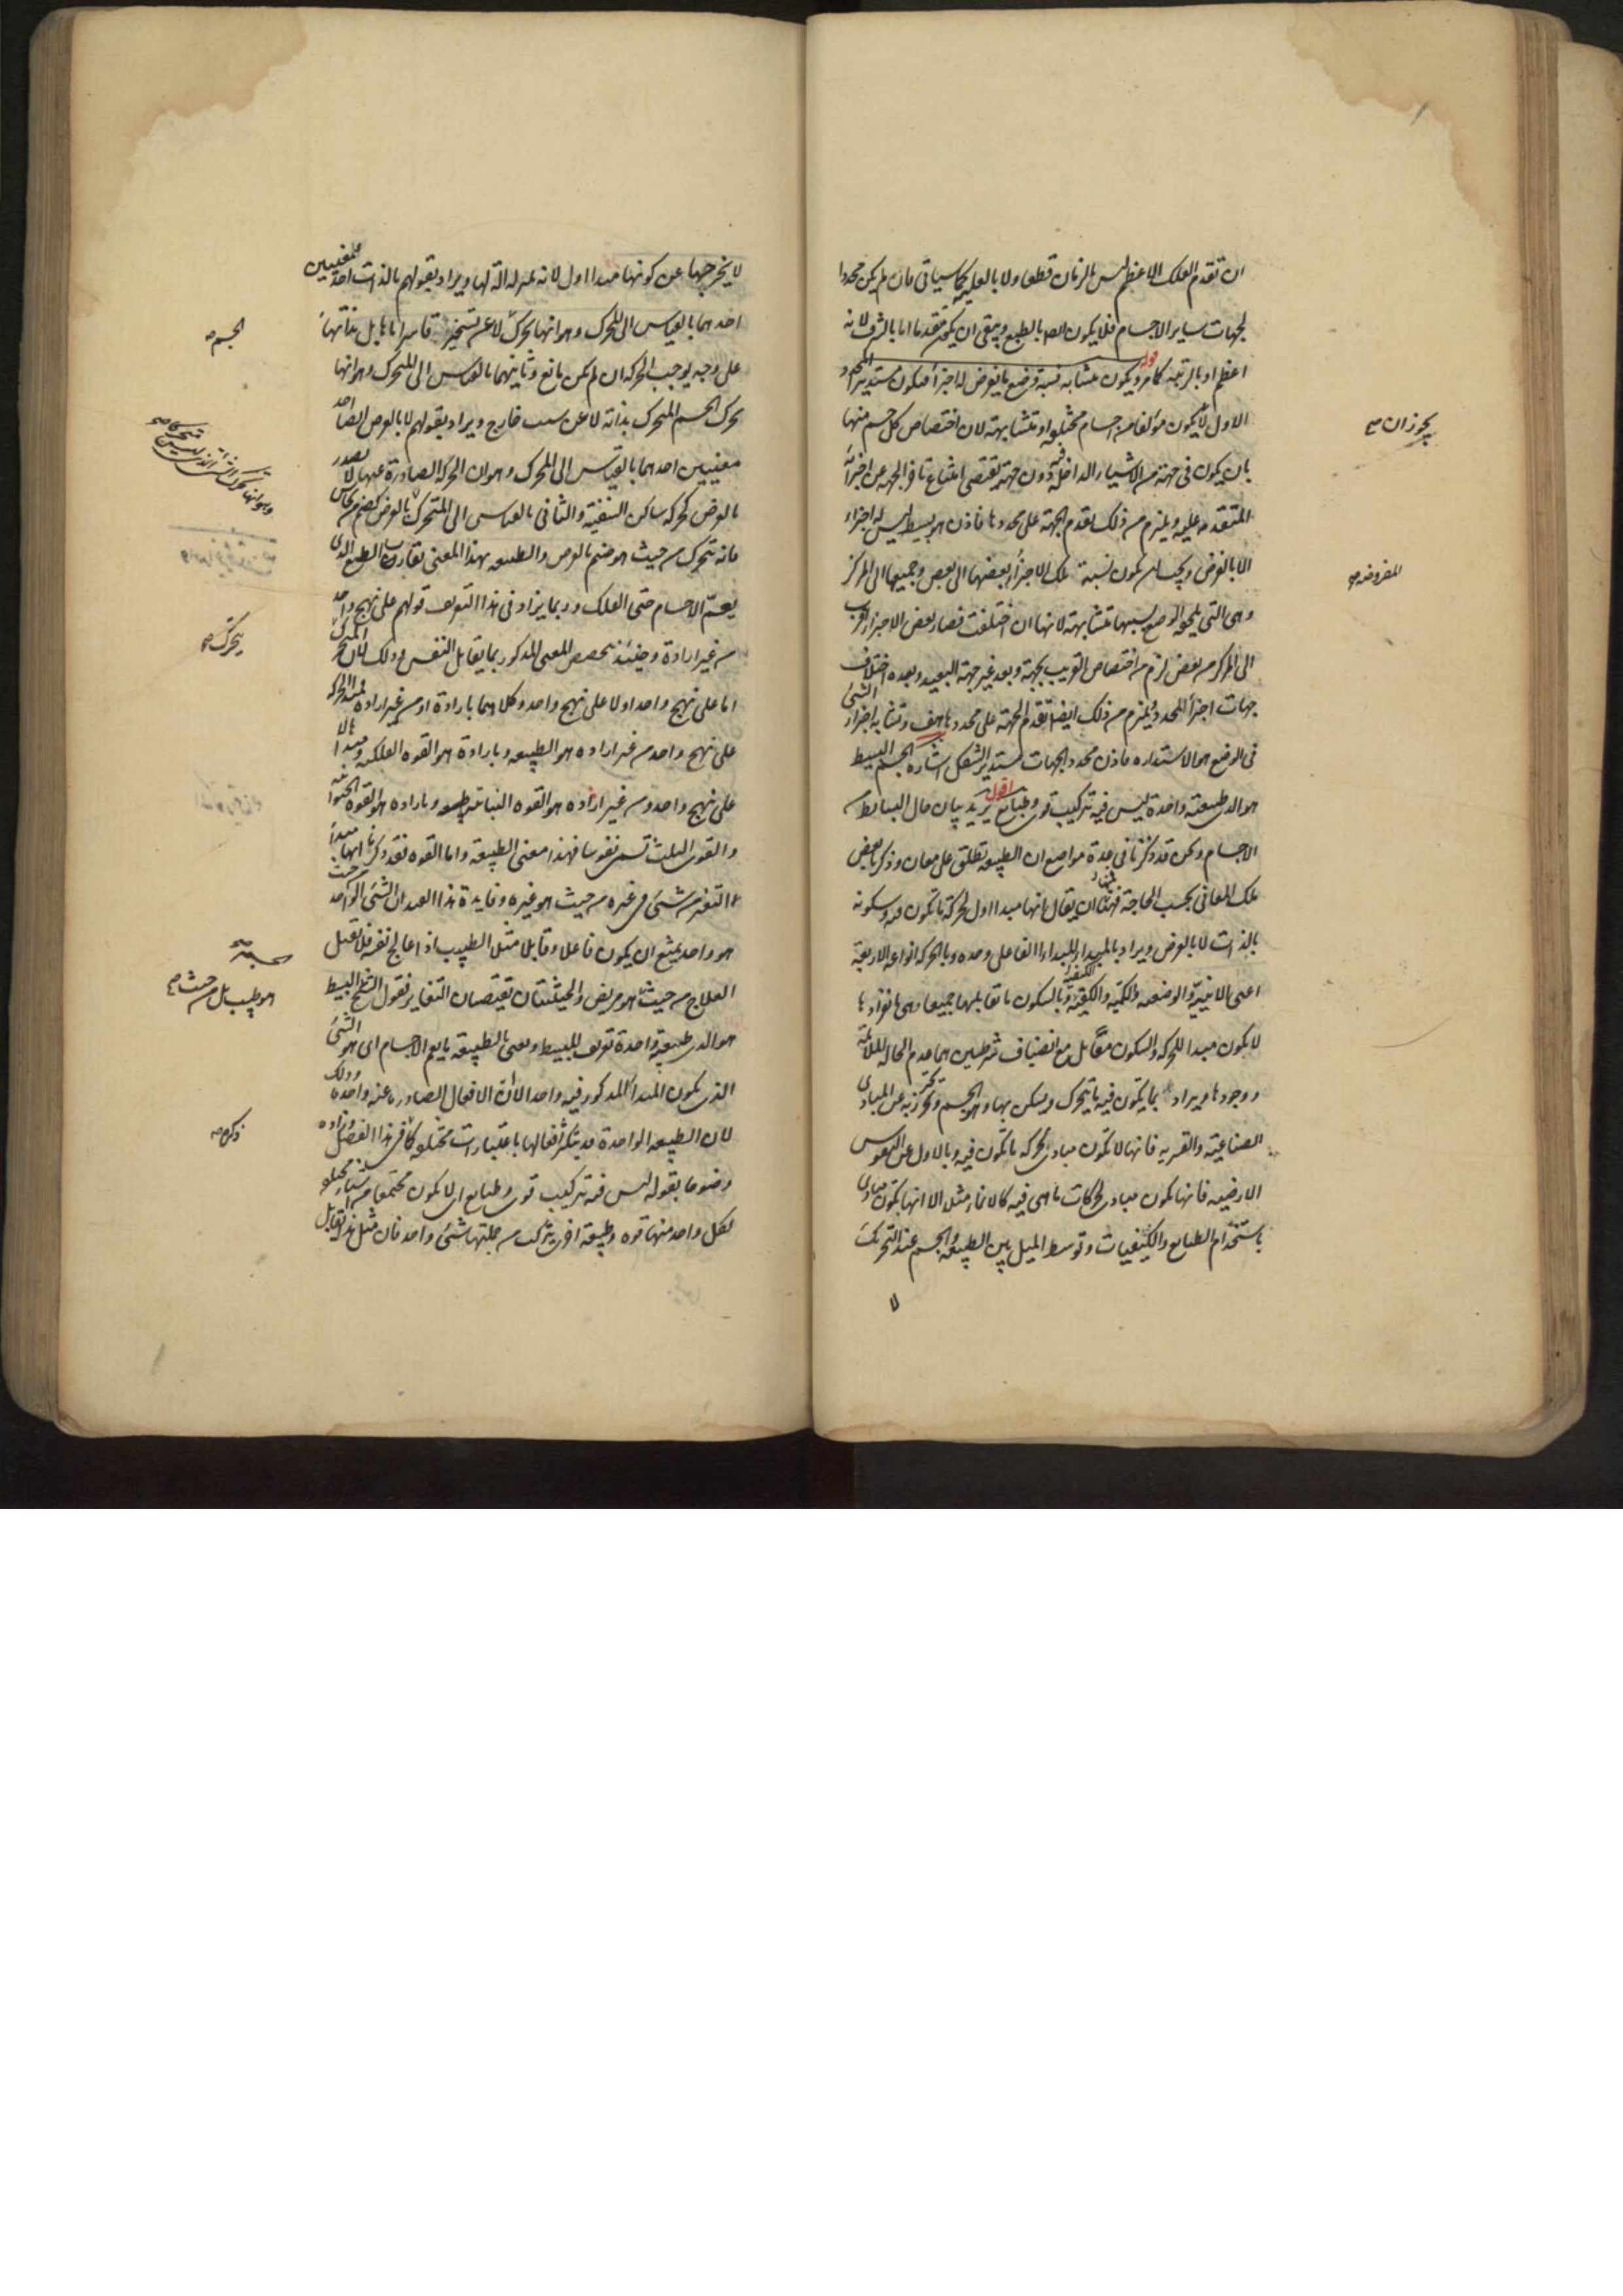 ان تقدم الفلك الاعظم ليس بالزمان قطعا ولا بالعلية كما سياتى فان لم يكن محددا
لجهات ساير الاجسام فلا يكون ايضا بالطبع ويبقى ان يكون متقدما اما بالشرف لانه
اعظم او بالرتبة كما مر قوله ويكون متشابه نسبة وضع ما يفرض له اجزاء فيكون مستديرا المحدد
الاول لا يكون مؤلفا من اجسام مختلفة او متشابهة لان اختصاص كل جسم منها
يجوز ان
بان يكون فى جهة من الاشياء الداخلة فيه دون جهة يقتضى امتناع تاخر الجهة عن اجزائه
المتقدمة عليه ويلزم من ذلك تقدم الجهة على محددها فاذن هو بسيط ليس له اجزاء
الا بالفرض ويجب ان يكون نسبة تلك الاجزاء بعضها الى بعض وجميعها الى المركز
المفروضة
وهى التى يلحقه الوضع بسببها متشابهة لانها ان اختلفت فصار بعض الاجزاء اقرب
الى المركز من بعض لزم من اختصاص القريب بجهة وبعد غير جهة البعيد وبعده اختلاف
جهات اجزاء المحدد ويلزم من ذلك ايضا تقدم الجهة على محددها هف وتشابه اجزاء الشئ
فى الوضع هو الاستدارة فاذن محدد الجهات مستدير الشكل اشارة الجسم البسيط
هو الذى طبيعته واحدة ليس فيه تركيب قوى وطبايع اقول يريد بيان حال البسايط من
الاجسام ونحن قد ذكرنا فى عدة مواضع ان الطبيعة تطلق على معان وذكرنا بعض
تلك المعانى بحسب الحاجة فمنها ان يقال انها مبدا اول لحركة ما تكون فيه وسكونه
بالذات لا بالعرض ويراد بالمبدا المبدا الفاعلى وحده وبالحركة انواعها الاربعة
اعنى الاينية والوضعية والكمية والكيفية وبالسكون ما تقابلها جميعا وهى بانفرادها
لا يكون مبدا للحركة والسكون معا بل مع انضياف شرطين هما عدم الحالة الملائمة
ووجودها ويراد بما يكون فيه ما يتحرك ويسكن بها وهو الجسم وتحترز به عن المبادى
الصناعية والقسرية فانها لا تكون مبادى لحركة ما تكون فيه وبالاول عن النفوس
الارضية فانها تكون مبادى لحركات ما هى فيه كالانماء مثلا الا انها تكون مبادى
باستخدام الطبايع والكيفيات وتوسط الميل بين الطبيعة والجسم عند التحريك
لا
لا يخرجها عن كونها مبدا اول لانه بمنزلة الة لها ويراد بقولهم بالذات احد معنيين
احدهما بالقياس الى المحرك وهو انها تحرك لا عن تسخير قاسر اياها بل بذاتها
الجسم
على وجه يوجب الحركة ان لم يكن مانع وثانيهما بالقياس الى المتحرك وهو انها
تحرك الجسم المتحرك بذاته لا عن سبب خارج ويراد بقولهم لا بالعرض ايضا احد
معنيين احدهما بالقياس الى المحرك وهو ان الحركة الصادرة عنها لا تصدر
بالعرض كحركة ساكن السفينة والثانى بالقياس الى المتحرك بالعرض كصنم من نحاس
فانه يتحرك من حيث هو صنم بالعرض والطبيعة بهذا المعنى تقارب الطبع الذى
يعم الاجسام حتى الفلك وربما يزاد فى هذا التعريف قولهم على نهج واحد
من غير ارادة وحينئذ يتخصص المعنى المذكور بما يقابل النفس وذلك لان المتحرك
يتحرك
اما على نهج واحد او لا على نهج واحد وكلاهما بارادة او من غير ارادة فمبدا الحركة
على نهج واحد من غير ارادة هو الطبيعة وبارادة هو القوة الفلكية ومبدا ها لا
على نهج واحد ومن غير ارادة هو القوة النباتية وبارادة هو القوة الحيوانية
والقوى الثلث تسمى نفوسا فهذا معنى الطبيعة واما القوة فقد ذكرنا انها مبدا
التغير من شئ فى غيره من حيث هو غيره وفايدة هذا القيد ان الشئ الواحد
هو واحد يمتنع ان يكون فاعلا وقابلا مثل الطبيب اذا عالج نفسه فلا يقبل
العلاج من حيث هو مريض والحيثيتان تقتضيان التغاير فقول الشيخ البسيط
هو طبيب بل من حيث
هو الذى طبيعته واحدة تعريف للبسيط ويعنى بالطبيعة ما يعم الاجسام اى هو الشئ
الذى يكون المبدا المذكور فيه واحدا لا ان الافعال الصادرة عنه واحدة وذلك
لان الطبيعة الواحدة قد يتكثر افعالها باعتبارات مختلفة كما فى هذا الفصل وزاده
ذكره
وضوحا بقوله ليس فيه تركيب قوى وطبايع اى لا يكون مجتمعا من اشياء مختلفة
لكل واحد منها قوة وطبيعة اخرى يتركب من جملتها شئ واحد فان مثل هذا يقابل